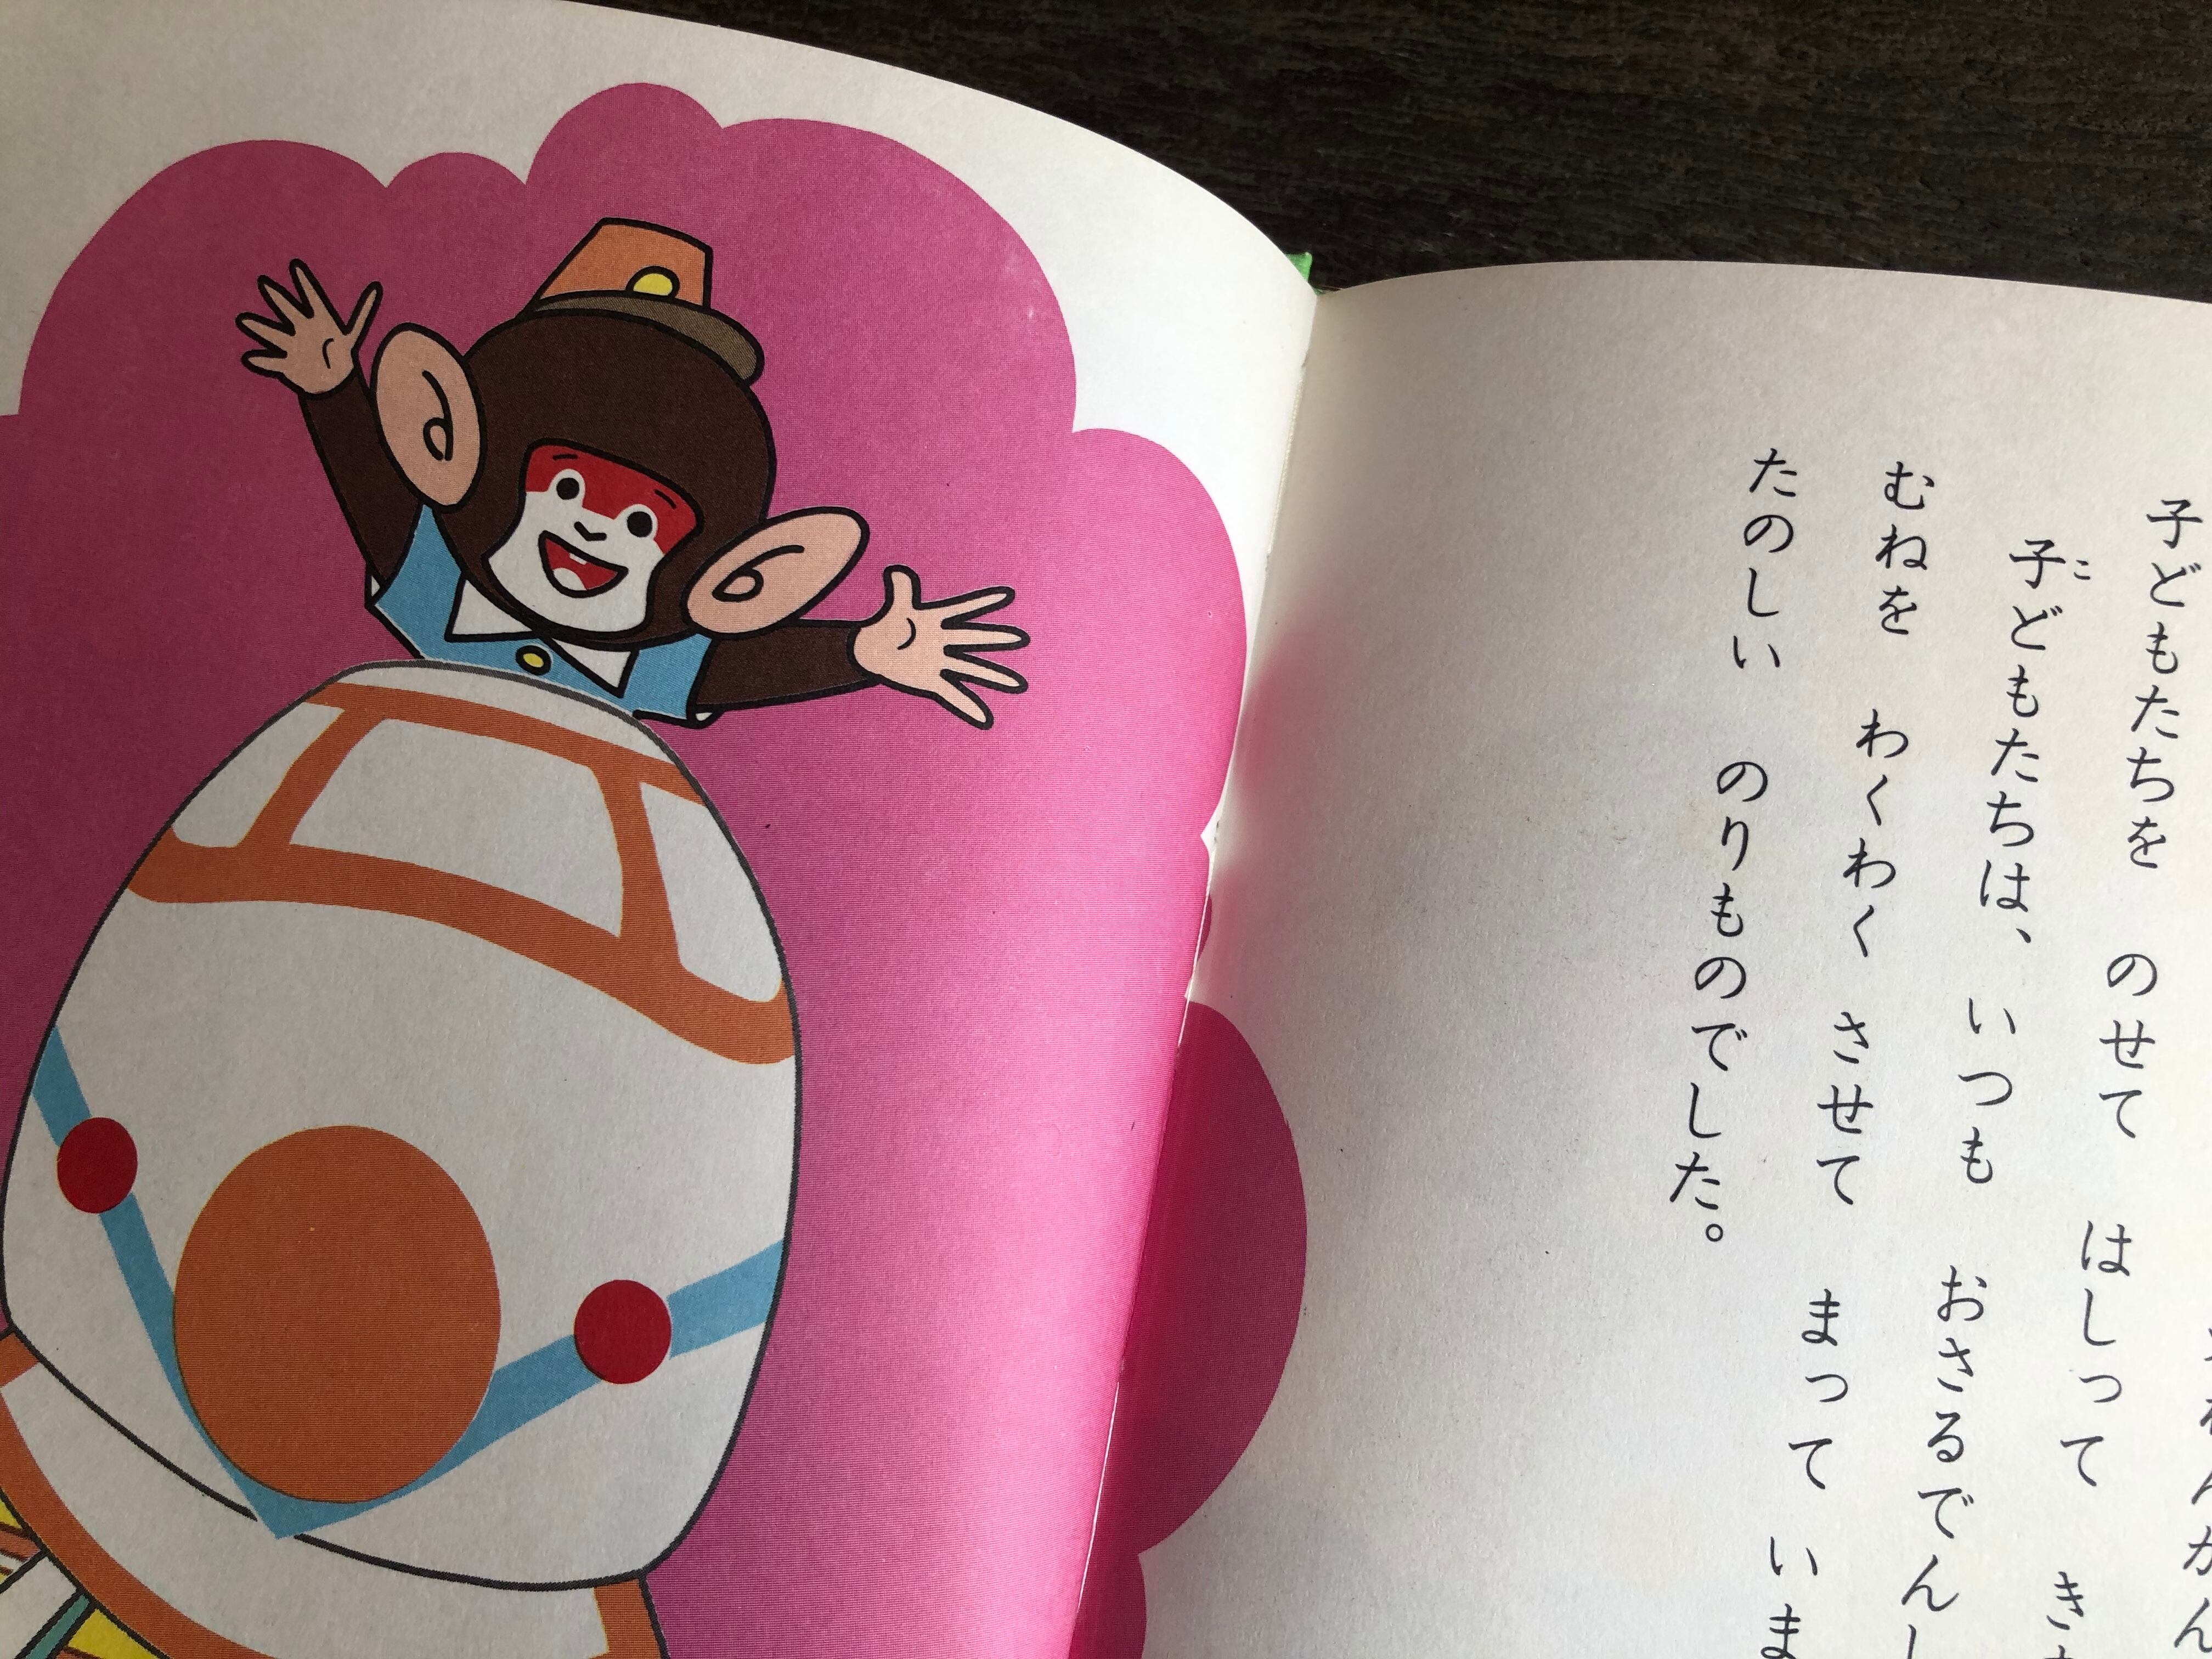 子どもたちを のせて はしって
子どもたちは、いつも おさるでんし
むねを わくわく させて まって いま
たのしい のりものでした。